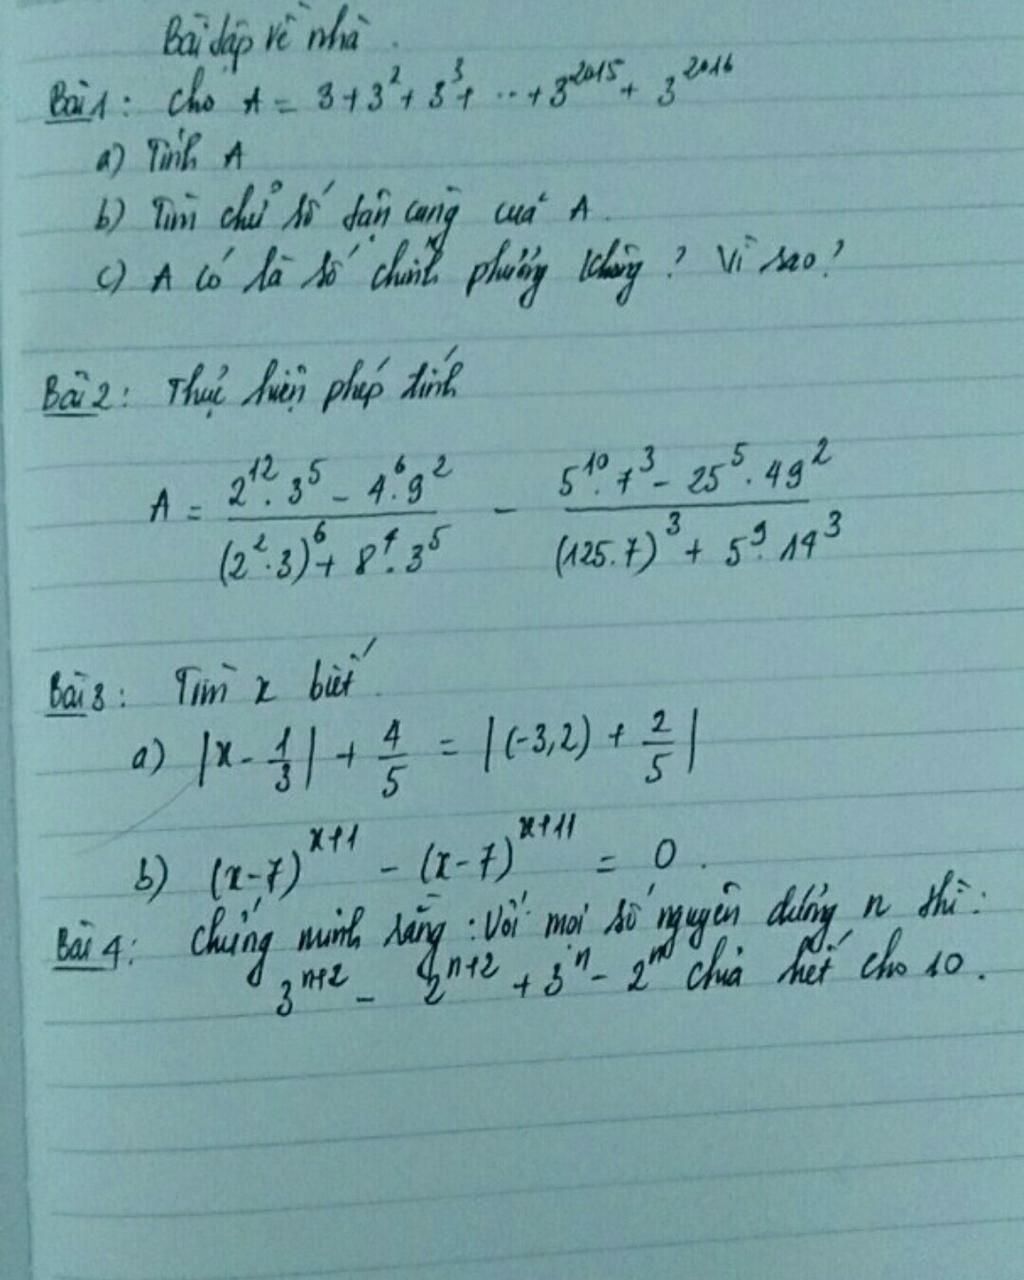 Bài tập về nhà.
Bài 1: Cho A = 3 + 3^2 + 3^3 + ... + 3^2015 + 3^2016
a) Tính A
b) Tìm chữ số tận cùng của A.
c) A có là số chính phương không? Vì sao?
Bài 2: Thực hiện phép tính
A = (2^12 . 3^5 - 4^6 . 9^2) / ((2^2 . 3)^6 + 8^4 . 3^5) - (5^10 . 7^3 - 25^5 . 49^2) / ((125.7)^3 + 5^9 . 14^3)
Bài 3: Tìm x biết
a) |x - 1/3| + 4/5 = |(-3,2) + 2/5|
b) (x-7)^x+1 - (x-7)^x+11 = 0.
Bài 4: Chứng minh rằng: Với mọi số nguyên dương n thì:
3^n+2 - 2^n+2 + 3^n - 2^n chia hết cho 10.